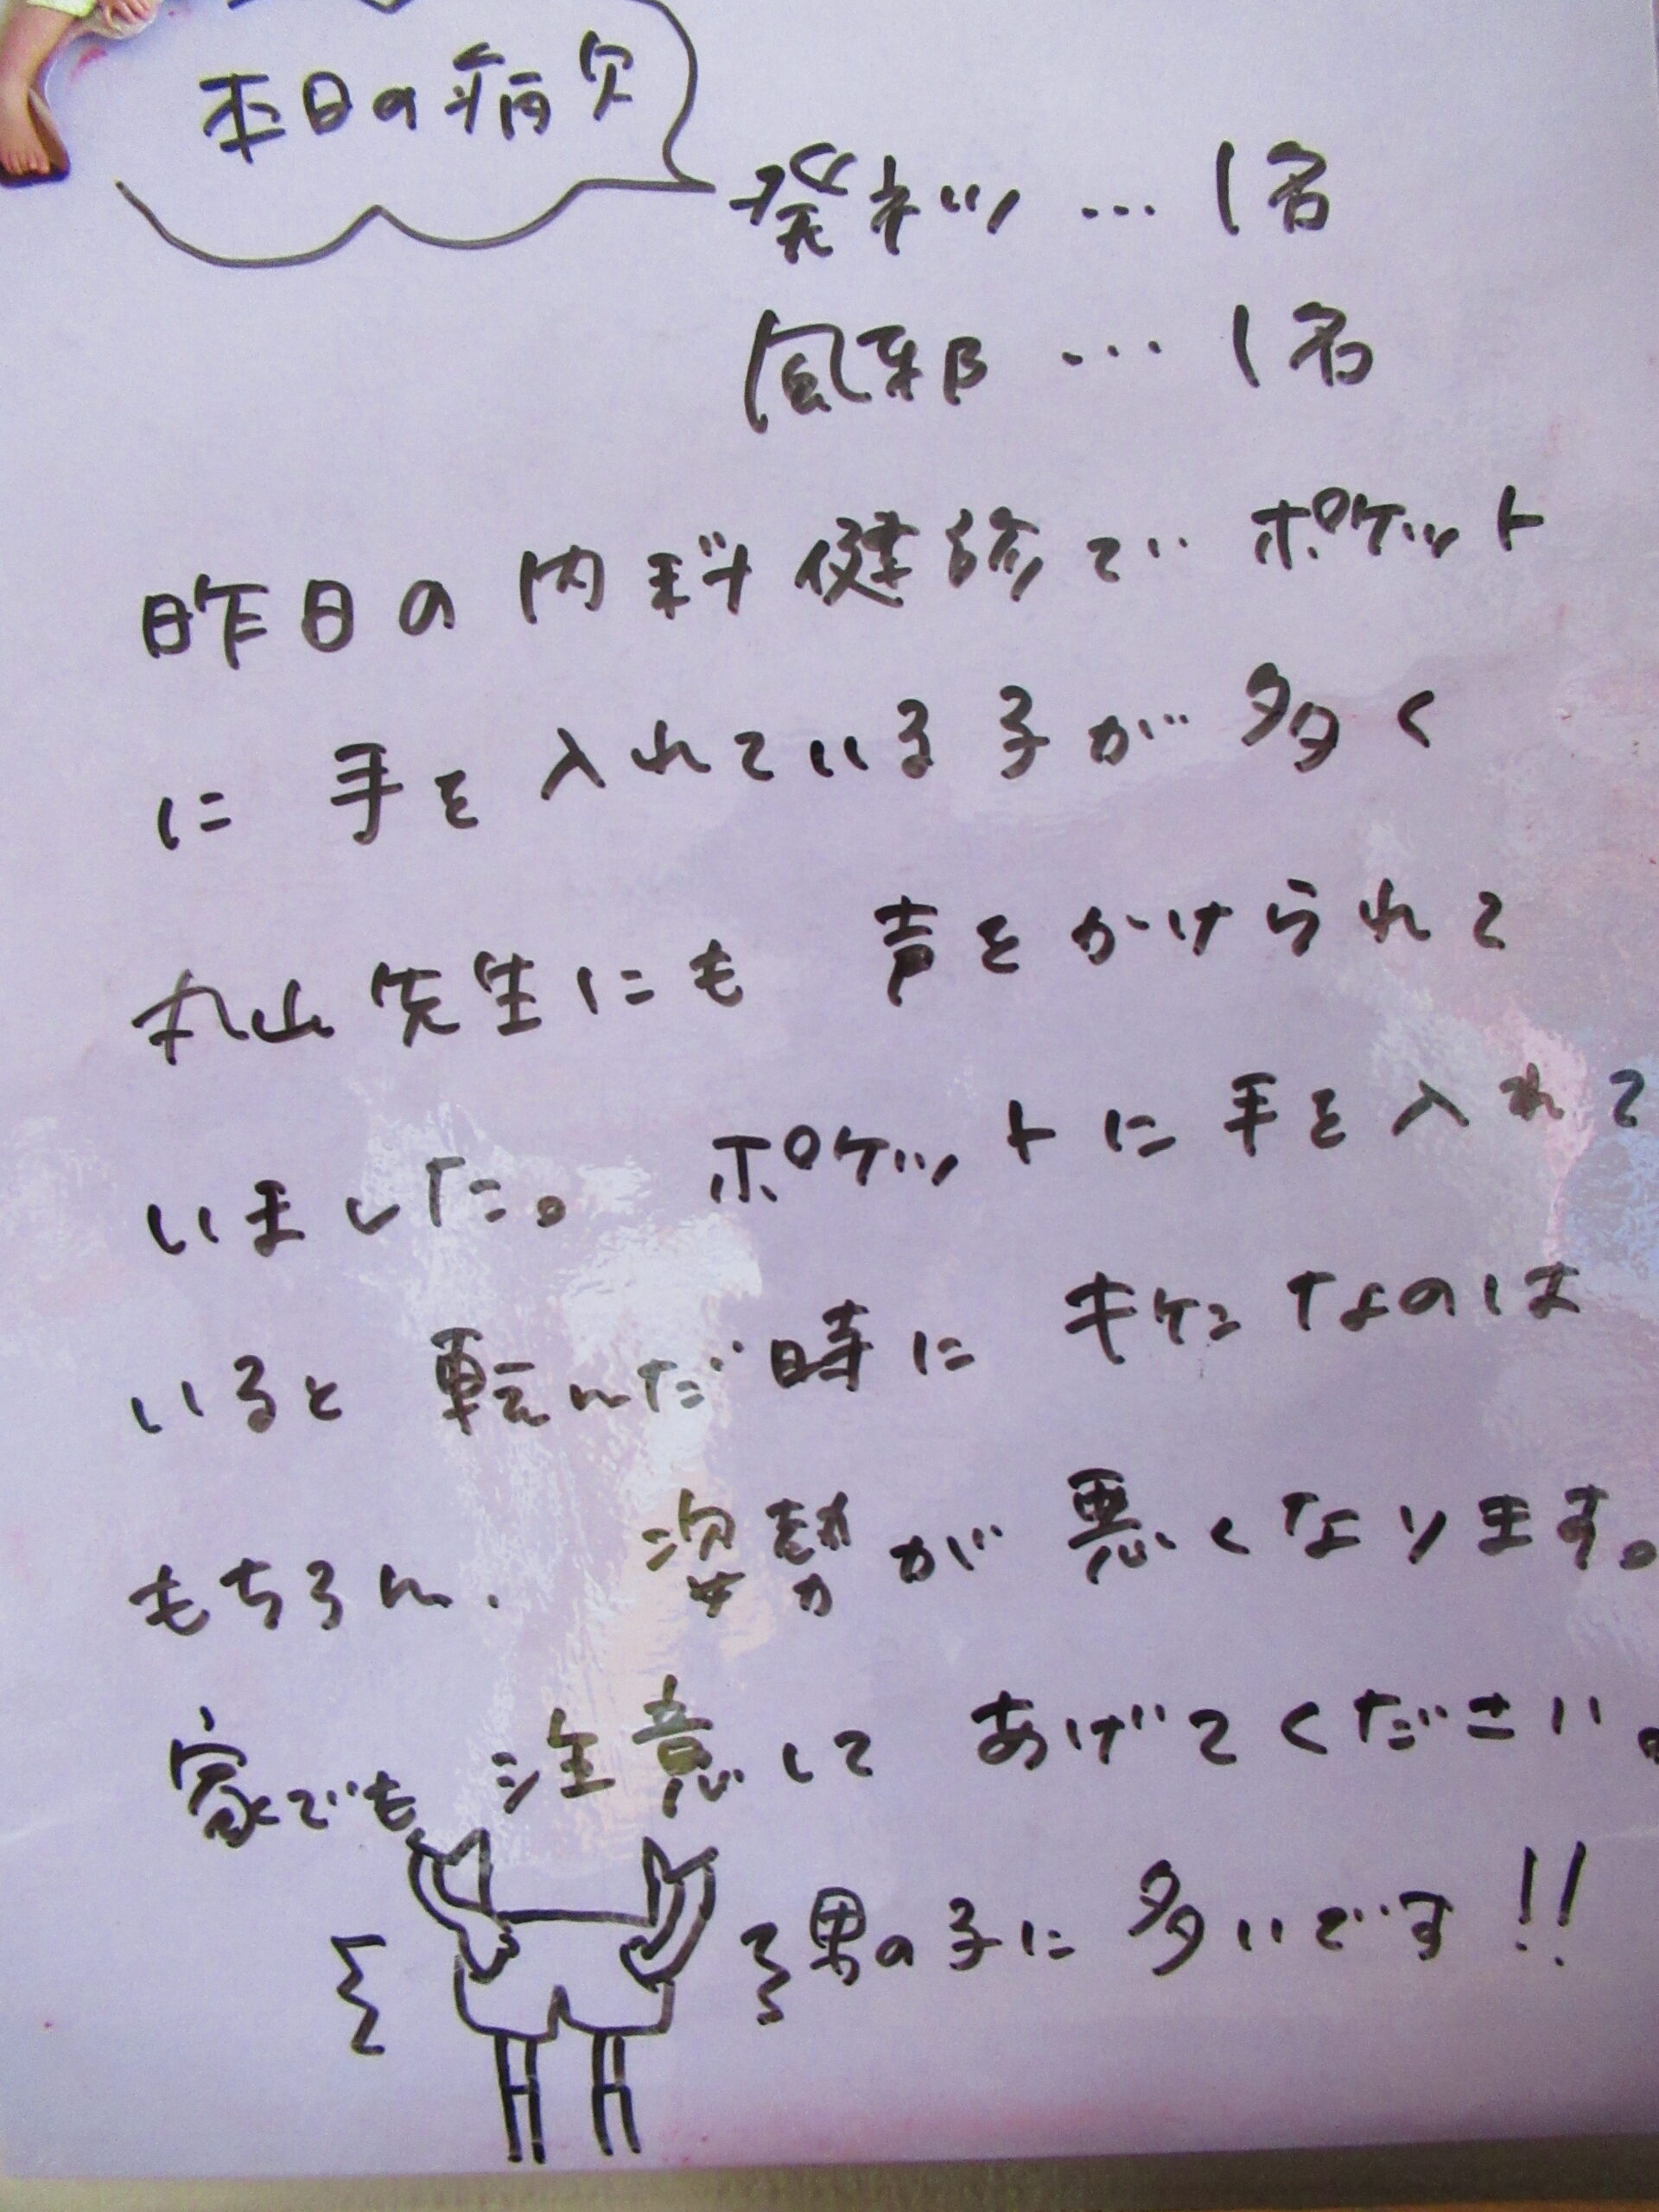 本日の病欠
発ネツ … 1名
風邪 … 1名
昨日の内科健診で ポケット
に 手を入れている子が多く
丸山先生にも 声をかけられて
いました。 ポケットに手を入れて
いると転んだ時に キケンなのは
もちろん、 姿勢が悪くなります。
家でも 注意して あげてください。
男の子に多いです!!